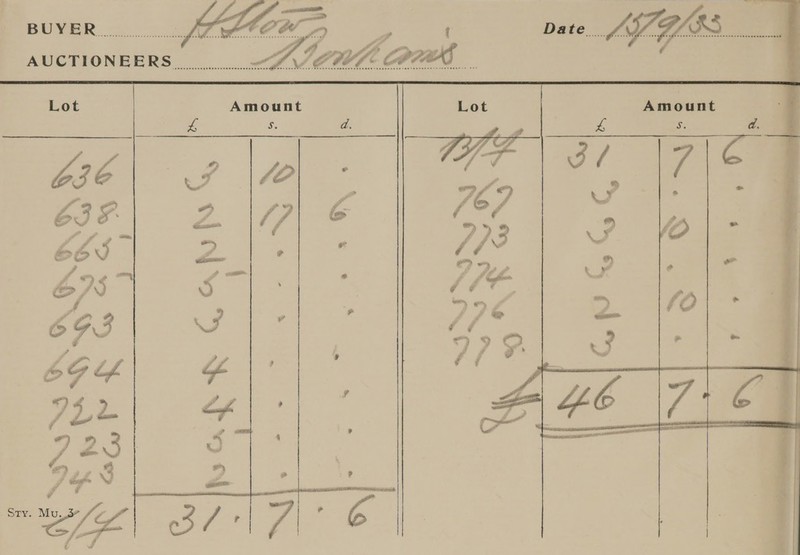 BUYER HStow Date 15/9/33
AUCTIONEERS Bonham's
Lot Amount
£ s. d.
636 3 10 .
638 2 17 6
665 2 . .
675 5 . .
693 3 . .
694 4 . .
722 4 . .
723 5 . .
743 2 . .
STY. MU. 3
C/F 31 . 7 . 6
Lot Amount
£ s. d.
B/F 31 7 6
767 3 . .
773 3 10 .
774 3 . .
776 2 10 .
778 3 . .
£ 46 7 . 6